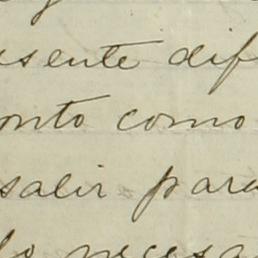 sente dif
onto como
salir para
lo necesa